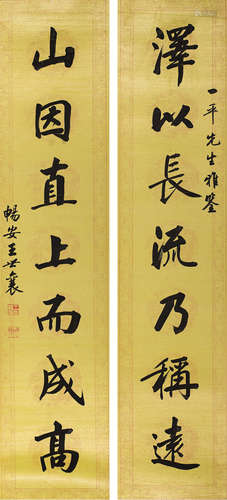 一平先生雅鉴
澤以長流乃稱遠
山因直上而成高
暢安王世襄